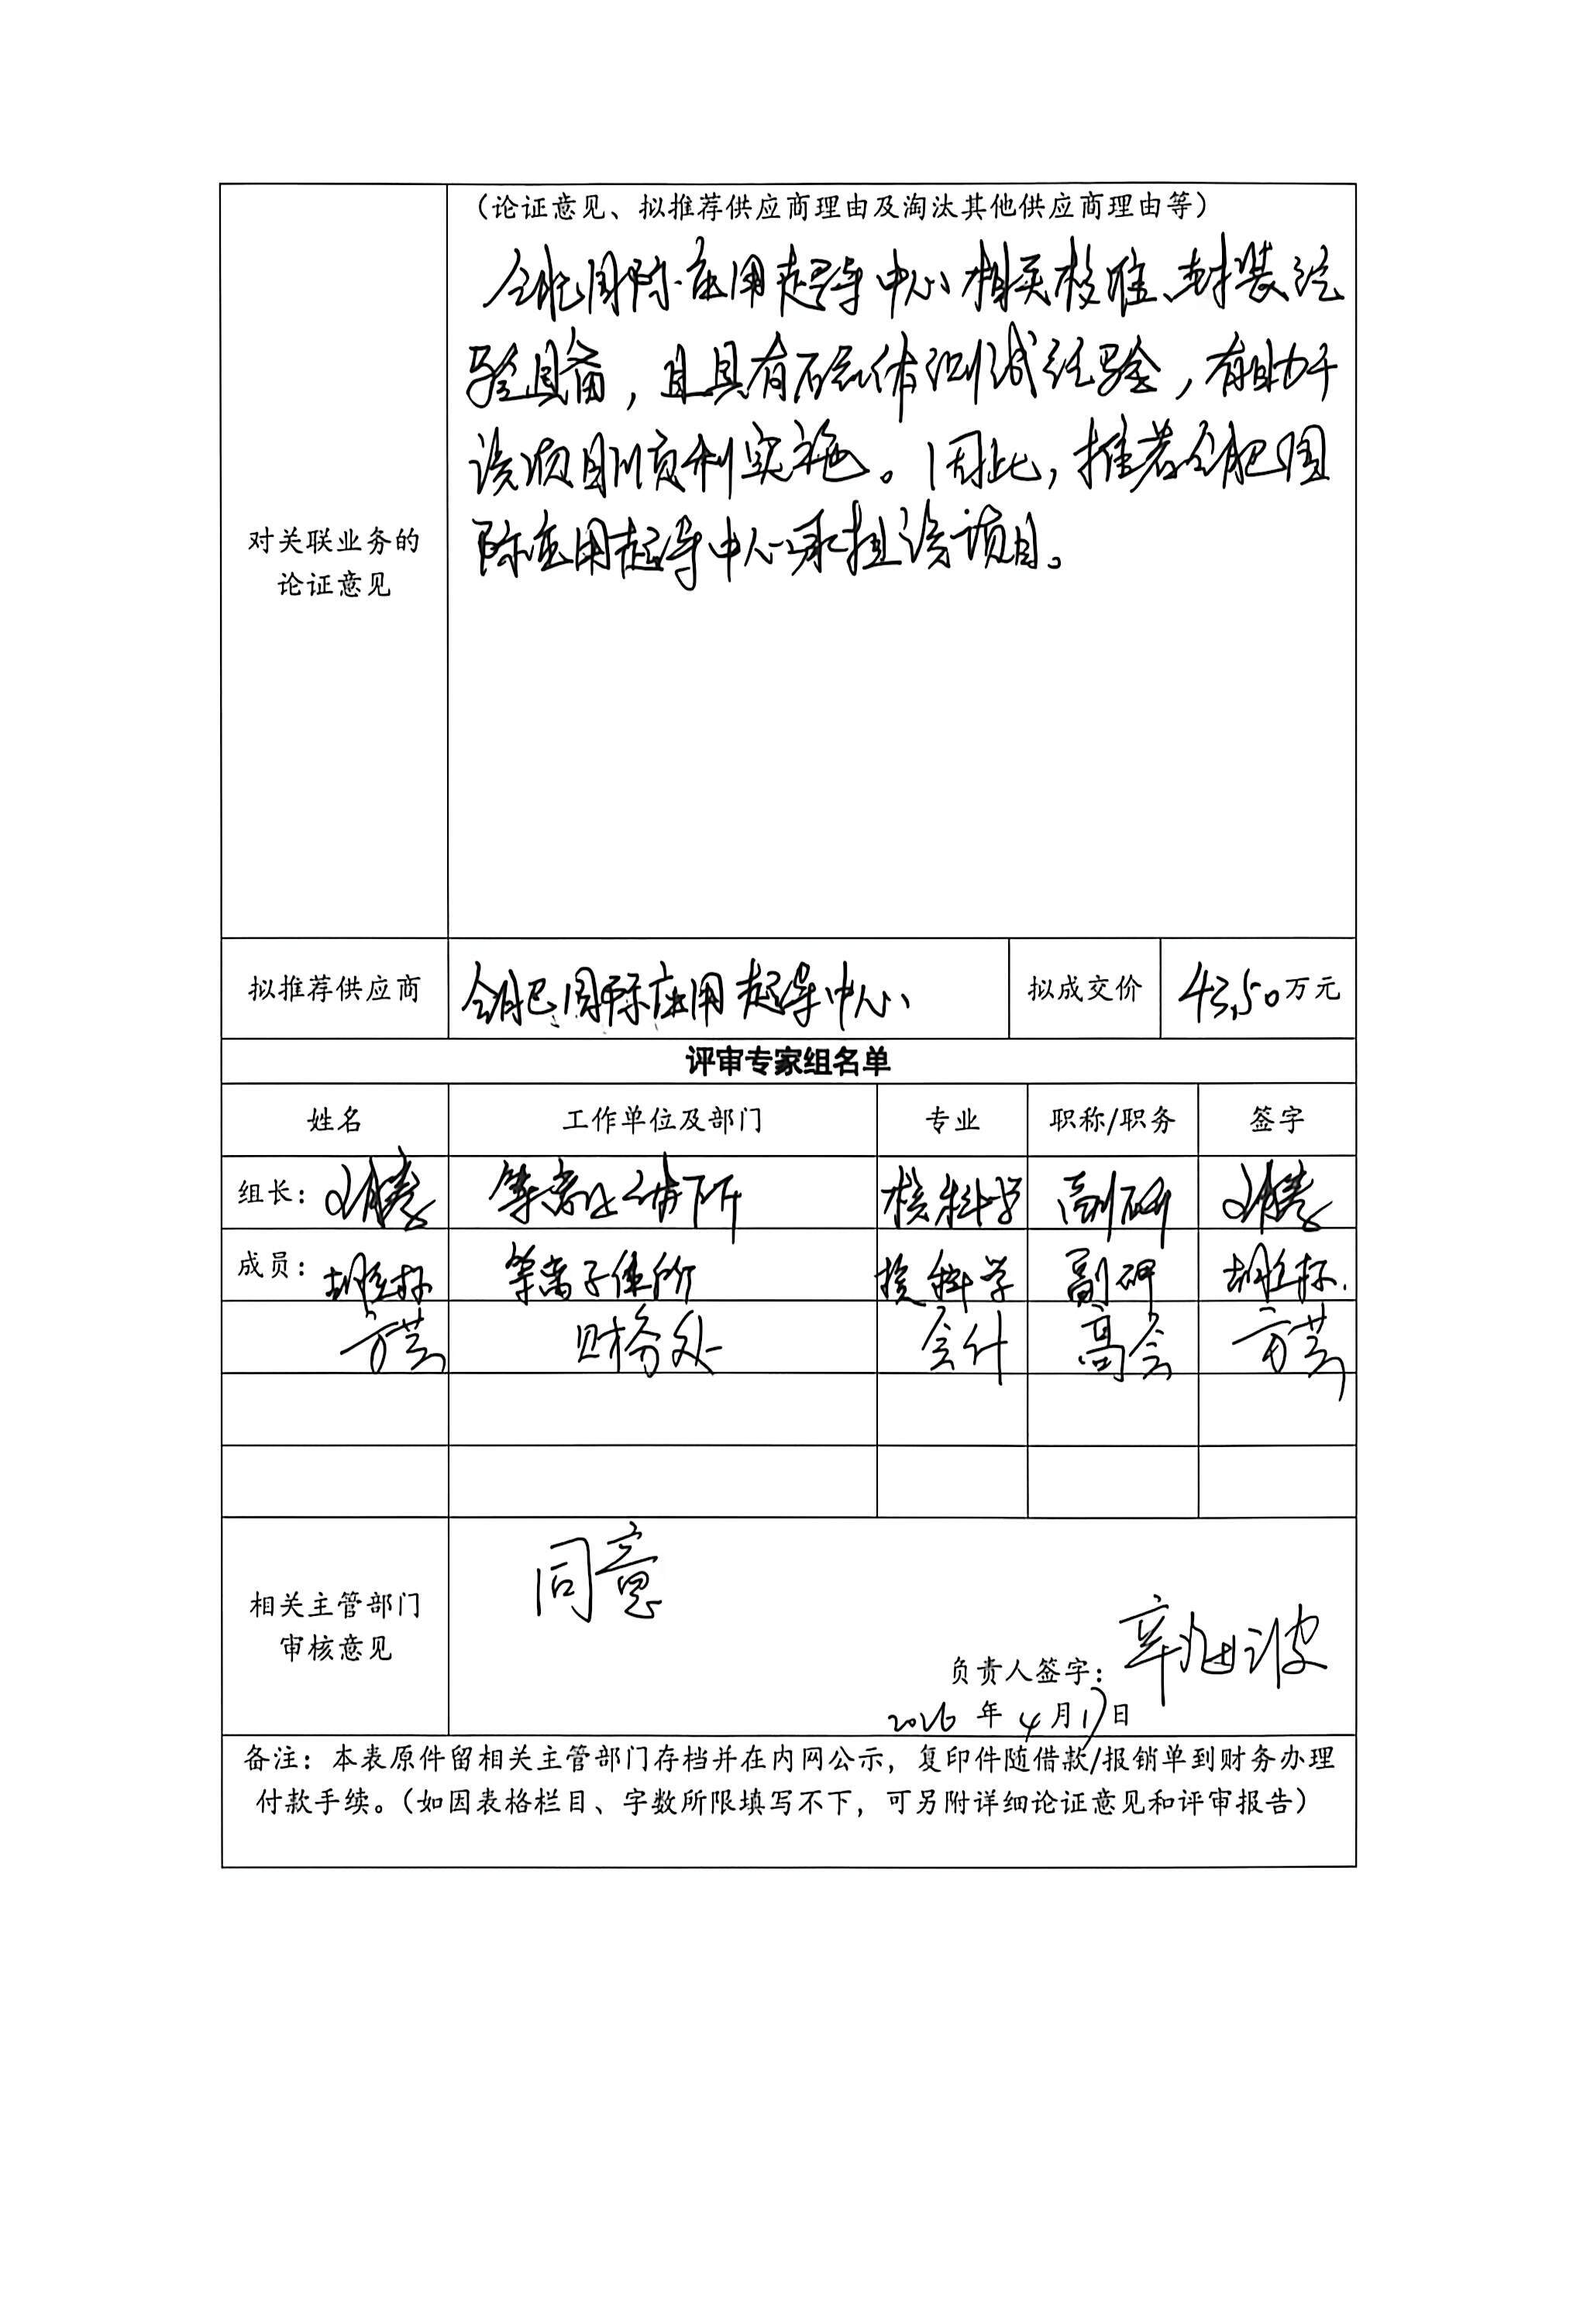 （论证意见、拟推荐供应商理由及淘汰其他供应商理由等）
合肥国际应用超导中心相关校准、封装经
验具备，且具有磁体测试经验，有助于
该项目顺利实施。因此，推荐合肥国
际应用超导中心承担该项目。
对关联业务的
论证意见
拟推荐供应商 合肥国际应用超导中心 拟成交价 43.50万元
评审专家组名单
姓名 工作单位及部门 专业 职称/职务 签字
组长： 等离子体所 核科学 副研
成员： 等离子体所 核科学 副研
方芸 财务处 会计 高会 方芸
同意
相关主管部门
审核意见
负责人签字：
2026 年 4 月 17 日
备注：本表原件留相关主管部门存档并在内网公示，复印件随借款/报销单到财务办理
付款手续。（如因表格栏目、字数所限填写不下，可另附详细论证意见和评审报告）